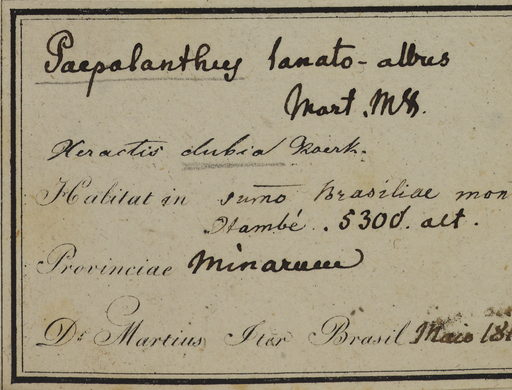 Paepalanthus lanato-albus
Mart. MS.
Xeractis dubia Koern.
Habitat in sum̅o Brasiliae mon
Itambé. 5300'. alt.
Provinciae Minarum
Dr Martius Iter Brasil Maio 18